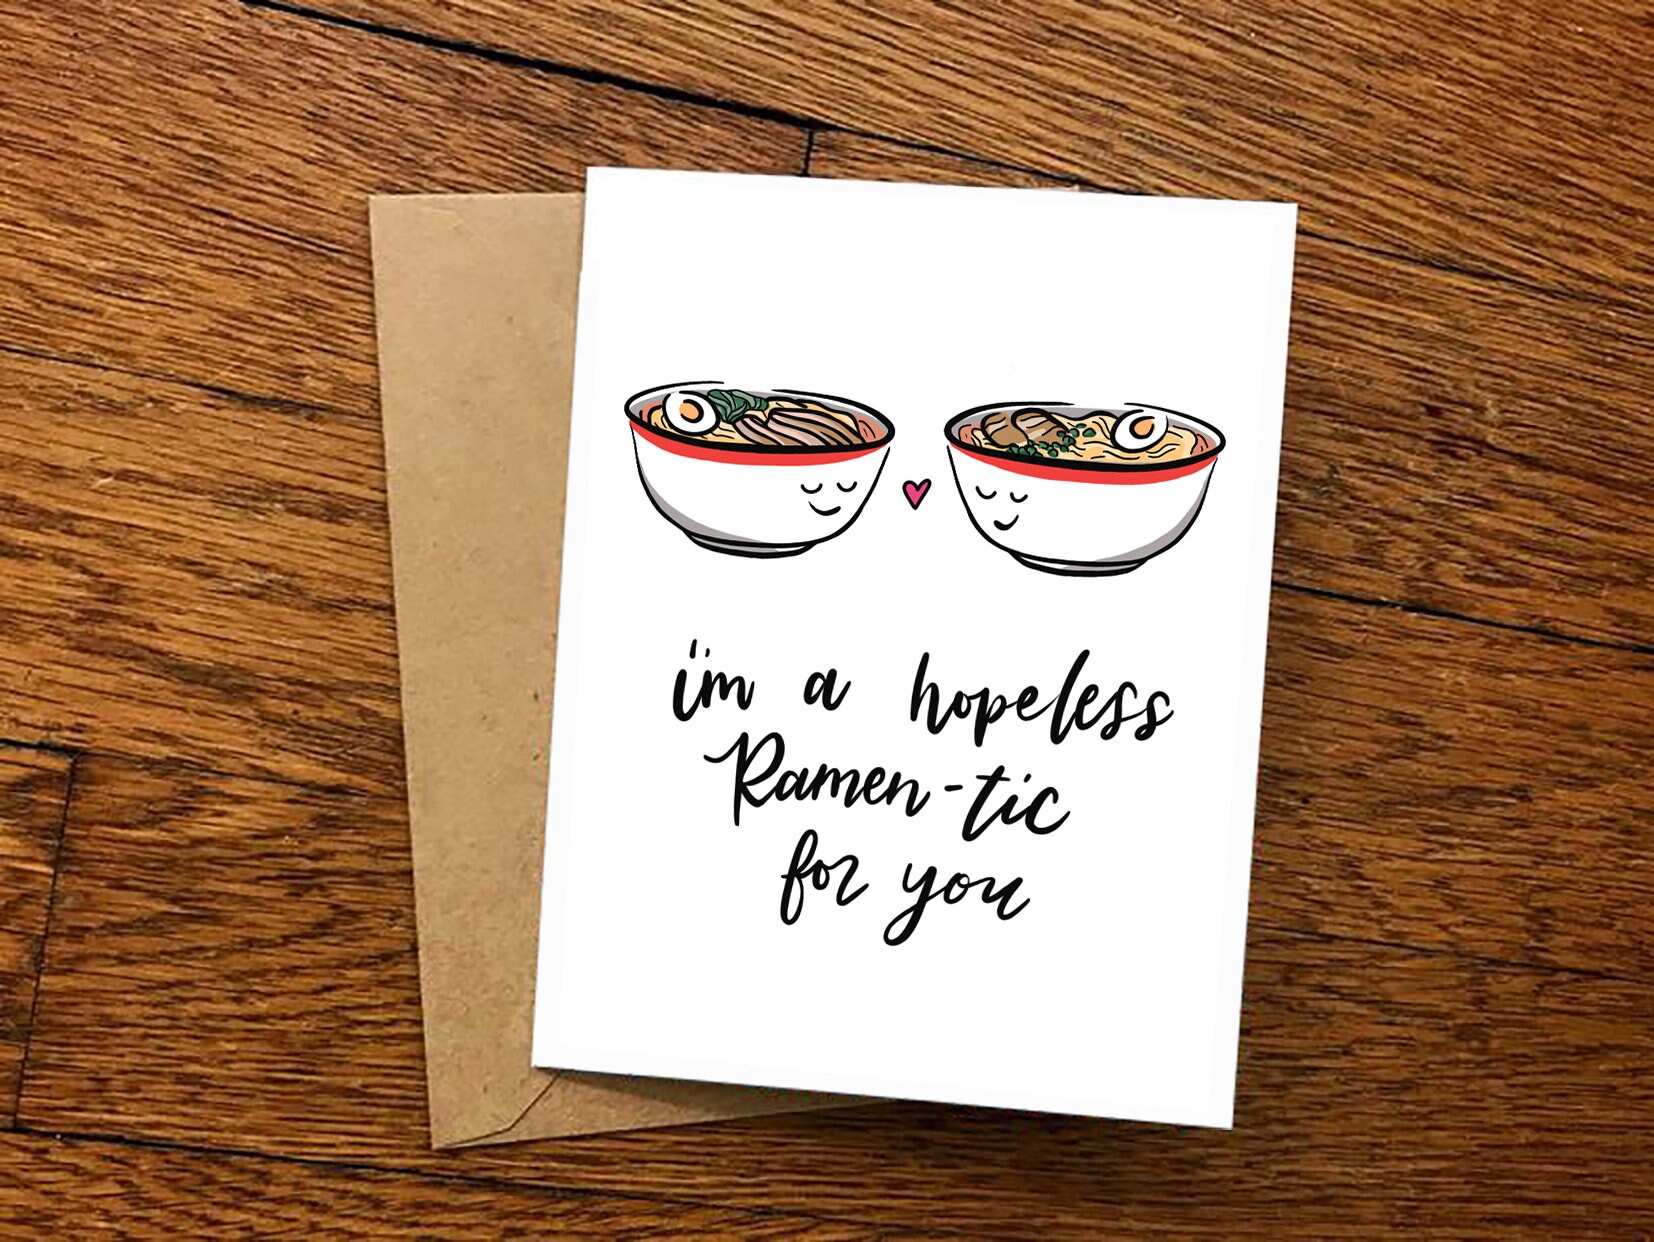 i'm a hopeless
Ramen-tic
for you